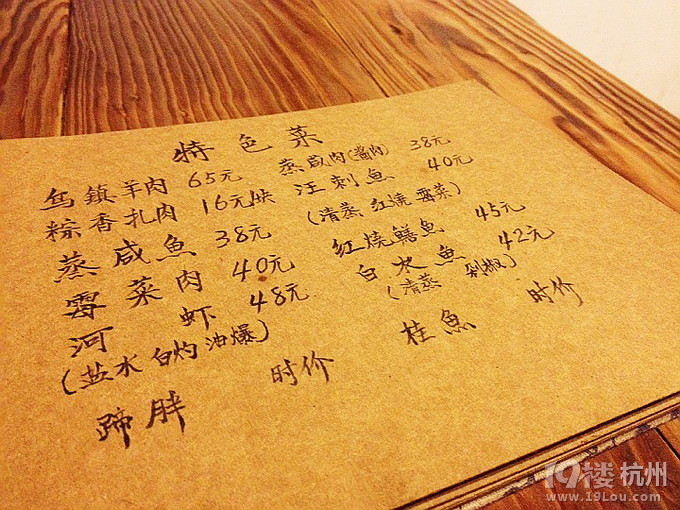 特色菜
乌鎮羊肉 65元
粽香扎肉 16元/块
蒸咸魚 38元
霉菜肉 40元
河虾 48元
(盐水 白灼 油爆)
蹄胖 时价
蒸咸肉(酱肉) 38元
汪刺魚 40元
(清蒸 红烧 霉菜)
红烧鳝鱼 45元
白水魚 42元
(清蒸 剁椒)
桂魚 时价
19楼 杭州
www.19Lou.com